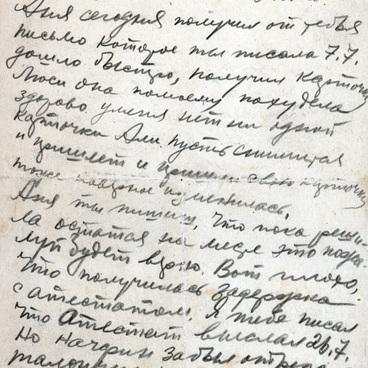 Аня сегодня получил от тебя
письмо которое ты писала 7.7.
дошло быстро, получил карточку
Люси она помоему похудела
здорово у меня нет ни одной
карточки Али. Пусть снимится
и пришлет и свою карточку
тоже наверное изменилась.
Аня ты пишиш, что пока реши-
ла остатся на месте это
будет верно. Вот плохо,
что получилась задержка
с атестатом. Я тебе писал
что Атестат выслал 26.7.
Но Начфин забыл
талон